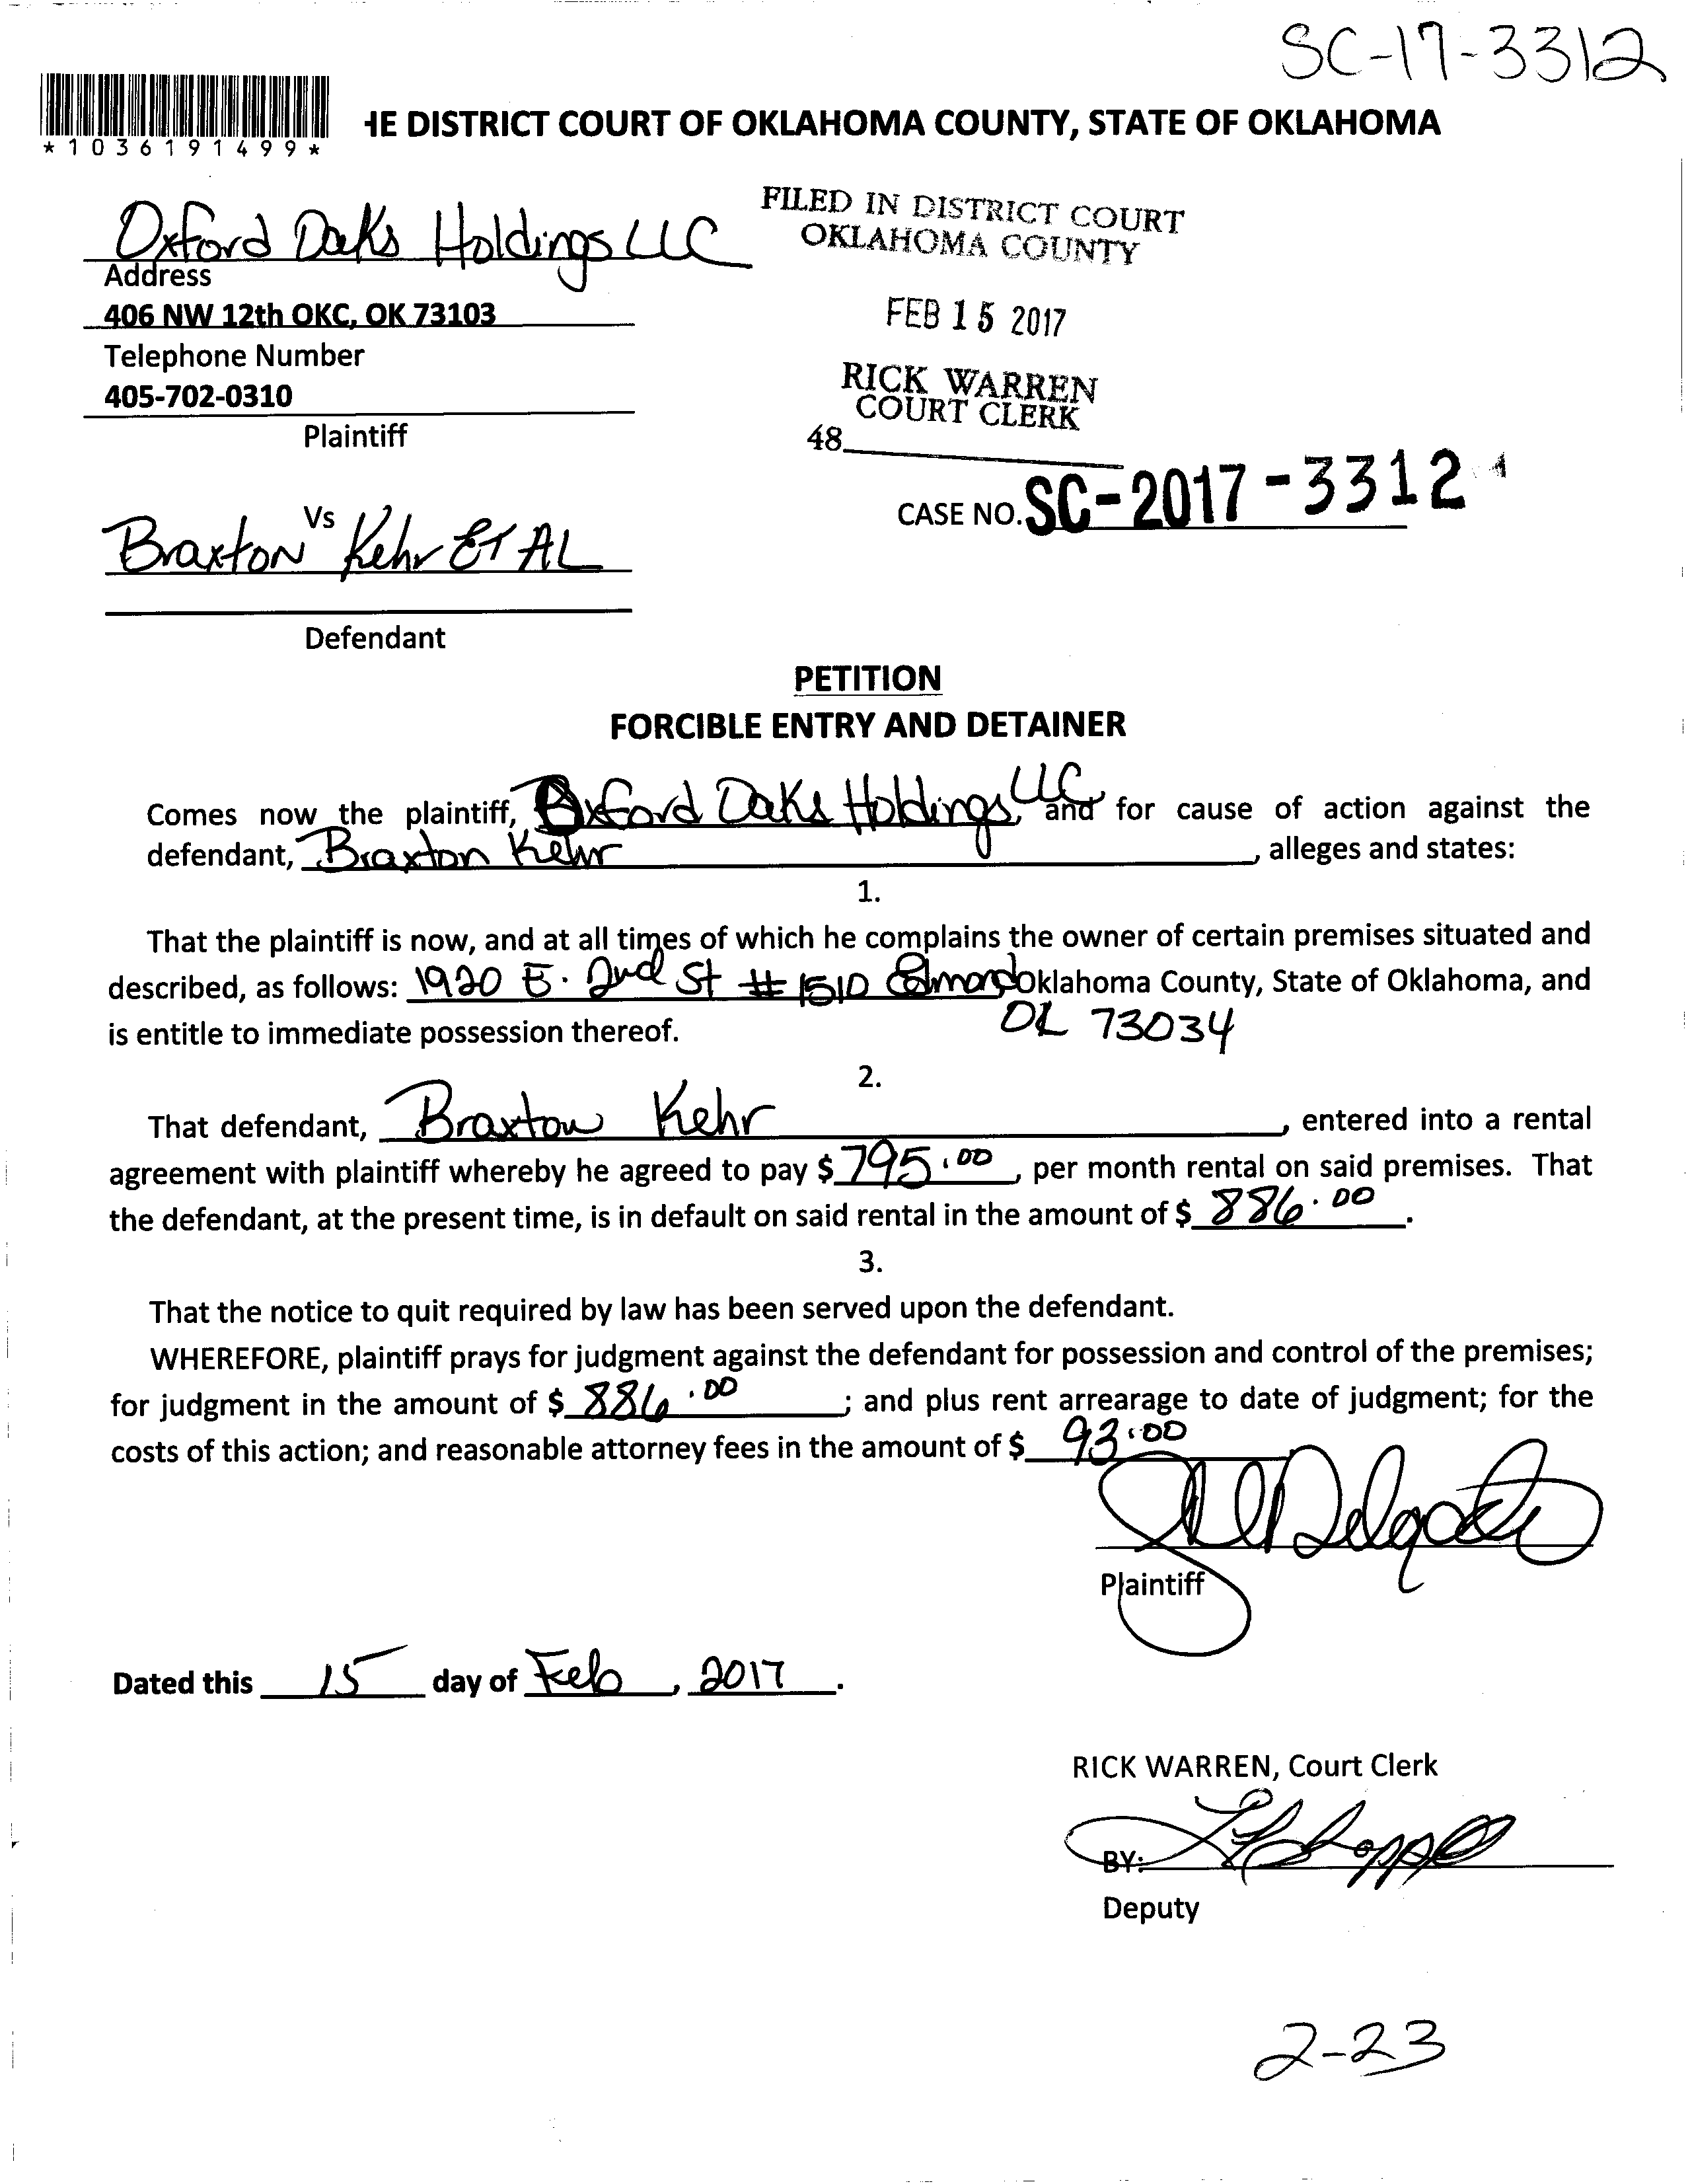 SC-17-3312
*1036191499*
HE DISTRICT COURT OF OKLAHOMA COUNTY, STATE OF OKLAHOMA
Oxford Oaks Holdings LLC
Address
406 NW 12th OKC, OK 73103
Telephone Number
405-702-0310
Plaintiff
FILED IN DISTRICT COURT
OKLAHOMA COUNTY
FEB 15 2017
RICK WARREN
COURT CLERK
48
CASE NO. SC-2017-3312
Vs
Braxton Kehr ET AL
Defendant
PETITION
FORCIBLE ENTRY AND DETAINER
Comes now the plaintiff, Oxford Oaks Holdings, LLC and for cause of action against the
defendant, Braxton Kehr, alleges and states:
1.
That the plaintiff is now, and at all times of which he complains the owner of certain premises situated and
described, as follows: 1920 E. 2nd St # 1510 Edmond Oklahoma County, State of Oklahoma, and
is entitle to immediate possession thereof. OK 73034
2.
That defendant, Braxton Kehr, entered into a rental
agreement with plaintiff whereby he agreed to pay $ 795.00, per month rental on said premises. That
the defendant, at the present time, is in default on said rental in the amount of $ 886.00.
3.
That the notice to quit required by law has been served upon the defendant.
WHEREFORE, plaintiff prays for judgment against the defendant for possession and control of the premises;
for judgment in the amount of $ 886.00; and plus rent arrearage to date of judgment; for the
costs of this action; and reasonable attorney fees in the amount of $ 93.00
Delgado
Plaintiff
Dated this 15 day of Feb, 2017.
RICK WARREN, Court Clerk
BY:
Deputy
2-23